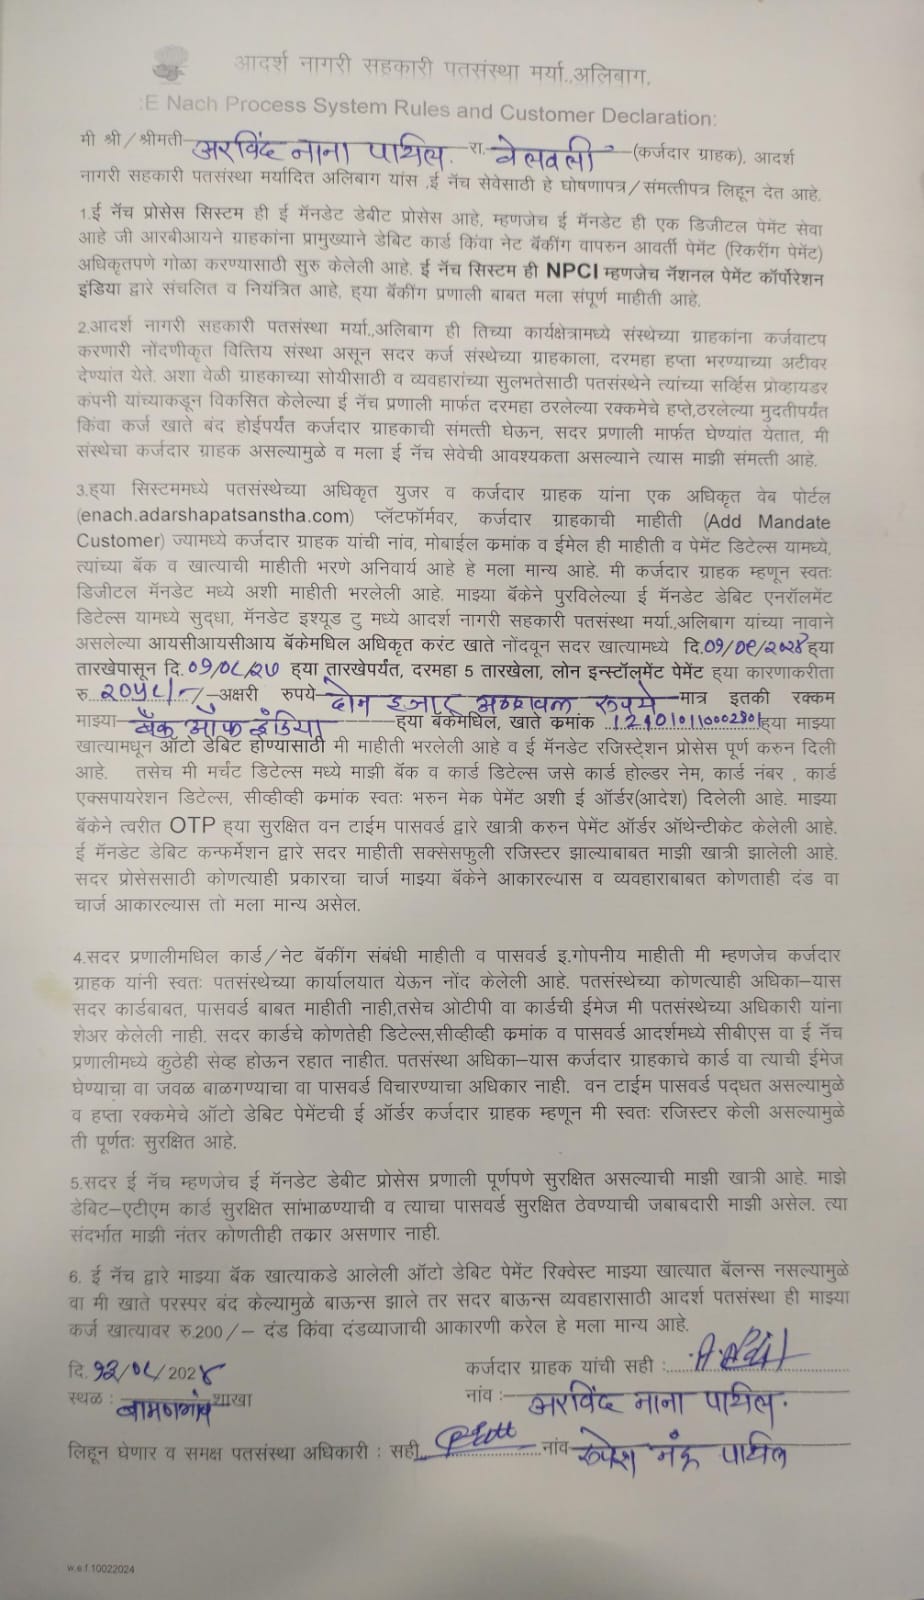 आदर्श नागरी सहकारी पतसंस्था मर्या.,अलिबाग.
:E Nach Process System Rules and Customer Declaration:
मी श्री/श्रीमती अरविंद नाना पाटील. रा. वेलवली (कर्जदार ग्राहक), आदर्श
नागरी सहकारी पतसंस्था मर्यादित अलिबाग यांस ,ई नॅच सेवेसाठी हे घोषणापत्र/संमत्तीपत्र लिहून देत आहे.
1.ई नॅच प्रोसेस सिस्टम ही ई मॅनडेट डेबीट प्रोसेस आहे, म्हणजेच ई मॅनडेट ही एक डिजीटल पेमेंट सेवा
आहे जी आरबीआयने ग्राहकांना प्रामुख्याने डेबिट कार्ड किंवा नेट बॅकींग वापरुन आवर्ती पेमेंट (रिकरींग पेमेंट)
अधिकृतपणे गोळा करण्यासाठी सुरु केलेली आहे. ई नॅच सिस्टम ही NPCI म्हणजेच नॅशनल पेमेंट कॉर्पोरेशन
इंडिया द्वारे संचलित व नियंत्रित आहे, ह्या बॅकींग प्रणाली बाबत मला संपूर्ण माहीती आहे.
2.आदर्श नागरी सहकारी पतसंस्था मर्या.,अलिबाग ही तिच्या कार्यक्षेत्रामध्ये संस्थेच्या ग्राहकांना कर्जवाटप
करणारी नोंदणीकृत वित्तिय संस्था असून सदर कर्ज संस्थेच्या ग्राहकाला, दरमहा हप्ता भरण्याच्या अटीवर
देण्यांत येते. अशा वेळी ग्राहकाच्या सोयीसाठी व व्यवहारांच्या सुलभतेसाठी पतसंस्थेने त्यांच्या सर्व्हिस प्रोव्हायडर
कंपनी यांच्याकडून विकसित केलेल्या ई नॅच प्रणाली मार्फत दरमहा ठरलेल्या रक्कमेचे हप्ते,ठरलेल्या मुदतीपर्यंत
किंवा कर्ज खाते बंद होईपर्यंत कर्जदार ग्राहकाची संमत्ती घेऊन, सदर प्रणाली मार्फत घेण्यांत येतात, मी
संस्थेचा कर्जदार ग्राहक असल्यामुळे व मला ई नॅच सेवेची आवश्यकता असल्याने त्यास माझी संमत्ती आहे.
3.ह्या सिस्टममध्ये पतसंस्थेच्या अधिकृत युजर व कर्जदार ग्राहक यांना एक अधिकृत वेब पोर्टल
(enach.adarshapatsanstha.com) प्लॅटफॉर्मवर, कर्जदार ग्राहकाची माहीती (Add Mandate
Customer) ज्यामध्ये कर्जदार ग्राहक यांची नांव, मोबाईल कमांक व ईमेल ही माहीती व पेमेंट डिटेल्स यामध्ये,
त्यांच्या बॅक व खात्याची माहीती भरणे अनिवार्य आहे हे मला मान्य आहे. मी कर्जदार ग्राहक म्हणून स्वतः
डिजीटल मॅनडेट मध्ये अशी माहीती भरलेली आहे. माझ्या बॅकेने पुरविलेल्या ई मॅनडेट डेबिट एनरॉलमेंट
डिटेल्स यामध्ये सुद्धा, मॅनडेट इश्यूड टु मध्ये आदर्श नागरी सहकारी पतसंस्था मर्या.,अलिबाग यांच्या नावाने
असलेल्या आयसीआयसीआय बॅकेमधिल अधिकृत करंट खाते नोंदवून सदर खात्यामध्ये दि.०१/०९/२०२४ ह्या
तारखेपासून दि.०१/०८/२७ ह्या तारखेपर्यंत, दरमहा 5 तारखेला, लोन इन्स्टॉलमेंट पेमेंट ह्या कारणाकरीता
रु २०५८/- /–अक्षरी रुपये दोन हजार अठ्ठावन्न रुपये मात्र इतकी रक्कम
माझ्या बँक ऑफ इंडिया ह्या बॅकेमधिल, खाते कमांक 121010110002801 ह्या माझ्या
खात्यामधून ऑटो डेबिट होण्यासाठी मी माहीती भरलेली आहे व ई मॅनडेट रजिस्ट्रेशन प्रोसेस पूर्ण करुन दिली
आहे. तसेच मी मर्चंट डिटेल्स मध्ये माझी बॅक व कार्ड डिटेल्स जसे कार्ड होल्डर नेम, कार्ड नंबर , कार्ड
एक्सपायरेशन डिटेल्स, सीव्हीव्ही कमांक स्वतः भरुन मेक पेमेंट अशी ई ऑर्डर(आदेश) दिलेली आहे. माझ्या
बॅकेने त्वरीत OTP ह्या सुरक्षित वन टाईम पासवर्ड द्वारे खात्री करुन पेमेंट ऑर्डर ऑथेन्टीकेट केलेली आहे.
ई मॅनडेट डेबिट कन्फर्मेशन द्वारे सदर माहीती सक्सेसफुली रजिस्टर झाल्याबाबत माझी खात्री झालेली आहे.
सदर प्रोसेससाठी कोणत्याही प्रकारचा चार्ज माझ्या बॅकेने आकारल्यास व व्यवहाराबाबत कोणताही दंड वा
चार्ज आकारल्यास तो मला मान्य असेल.
4.सदर प्रणालीमधिल कार्ड/नेट बॅकींग संबंधी माहीती व पासवर्ड इ.गोपनीय माहीती मी म्हणजेच कर्जदार
ग्राहक यांनी स्वतः पतसंस्थेच्या कार्यालयात येऊन नोंद केलेली आहे. पतसंस्थेच्या कोणत्याही अधिका–यास
सदर कार्डबाबत, पासवर्ड बाबत माहीती नाही,तसेच ओटीपी वा कार्डची ईमेज मी पतसंस्थेच्या अधिकारी यांना
शेअर केलेली नाही. सदर कार्डचे कोणतेही डिटेल्स,सीव्हीव्ही कमांक व पासवर्ड आदर्शमध्ये सीबीएस वा ई नॅच
प्रणालीमध्ये कुठेही सेव्ह होऊन रहात नाहीत. पतसंस्था अधिका–यास कर्जदार ग्राहकाचे कार्ड वा त्याची ईमेज
घेण्याचा वा जवळ बाळगण्याचा वा पासवर्ड विचारण्याचा अधिकार नाही. वन टाईम पासवर्ड पद्धत असल्यामुळे
व हप्ता रक्कमेचे ऑटो डेबिट पेमेंटची ई ऑर्डर कर्जदार ग्राहक म्हणून मी स्वतः रजिस्टर केली असल्यामुळे
ती पूर्णतः सुरक्षित आहे.
5.सदर ई नॅच म्हणजेच ई मॅनडेट डेबीट प्रोसेस प्रणाली पूर्णपणे सुरक्षित असल्याची माझी खात्री आहे. माझे
डेबिट–एटीएम कार्ड सुरक्षित सांभाळण्याची व त्याचा पासवर्ड सुरक्षित ठेवण्याची जबाबदारी माझी असेल. त्या
संदर्भात माझी नंतर कोणतीही तक्रार असणार नाही.
6. ई नॅच द्वारे माझ्या बॅक खात्याकडे आलेली ऑटो डेबिट पेमेंट रिक्वेस्ट माझ्या खात्यात बॅलन्स नसल्यामुळे
वा मी खाते परस्पर बंद केल्यामुळे बाऊन्स झाले तर सदर बाऊन्स व्यवहारासाठी आदर्श पतसंस्था ही माझ्या
कर्ज खात्यावर रु.200/– दंड किंवा दंडव्याजाची आकारणी करेल हे मला मान्य आहे.
दि.१२/०८/2024 कर्जदार ग्राहक यांची सही :
स्थळ : बामणगांव शाखा नांव :– अरविंद नाना पाटील.
लिहून घेणार व समक्ष पतसंस्था अधिकारी : सही नांव रुपेश नंदू पाटील
w.e.f.10022024